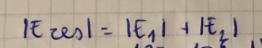 |E res| = |E₁| + |E₂|